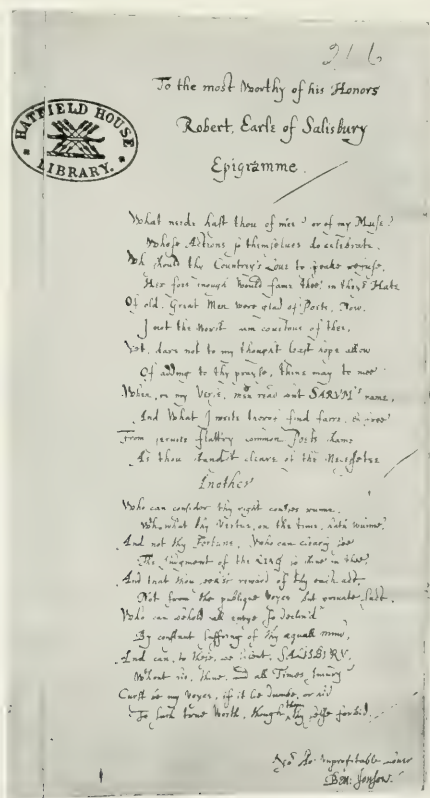 216
HATFIELD HOUSE
LIBRARY.
To the most Worthy of his Honors
Robert, Earle of Salisbury
Epigramme.
What neede hast thou of mee? or of my Muse?
Whose Actions so themselues do celebrate.
Wh should thy Countrye's Loue to speake refuse,
Her foes inough would fame thee, in theyr Hate.
Of old, Great Men were glad of Poets. Now,
I not the Worst am couetous of thee.
Yet, dare not to my thought least hope allow
Of adding to thy prayse, thine may to mee
When, on my Verse, men read but SARVM's name,
And What I write therof find farre, & free
From seruile flattry common Poets shame
As thou stand'st cleare of the Necessitee
Another
Who can consider thy right courses runne,
With what thy Vertue, on the time, hath wunne,
And not thy Fortune, Who can clearly see
The iudgment of the KING so shine in thee?
And that thou seek'st reward of thy each act,
Not from the publique Voyce but priuate fact.
Who can behold all enuye so declin'd
By constant suffring of thy æquall mind,
And can, to these, be silent, SALISBVRY,
Without his, thine, and all Times Iniury
Curst be my Voyce, if it lie dumbe, or nid
To such true Worth, though thou thy selfe forbid.
Ben: Jonson.